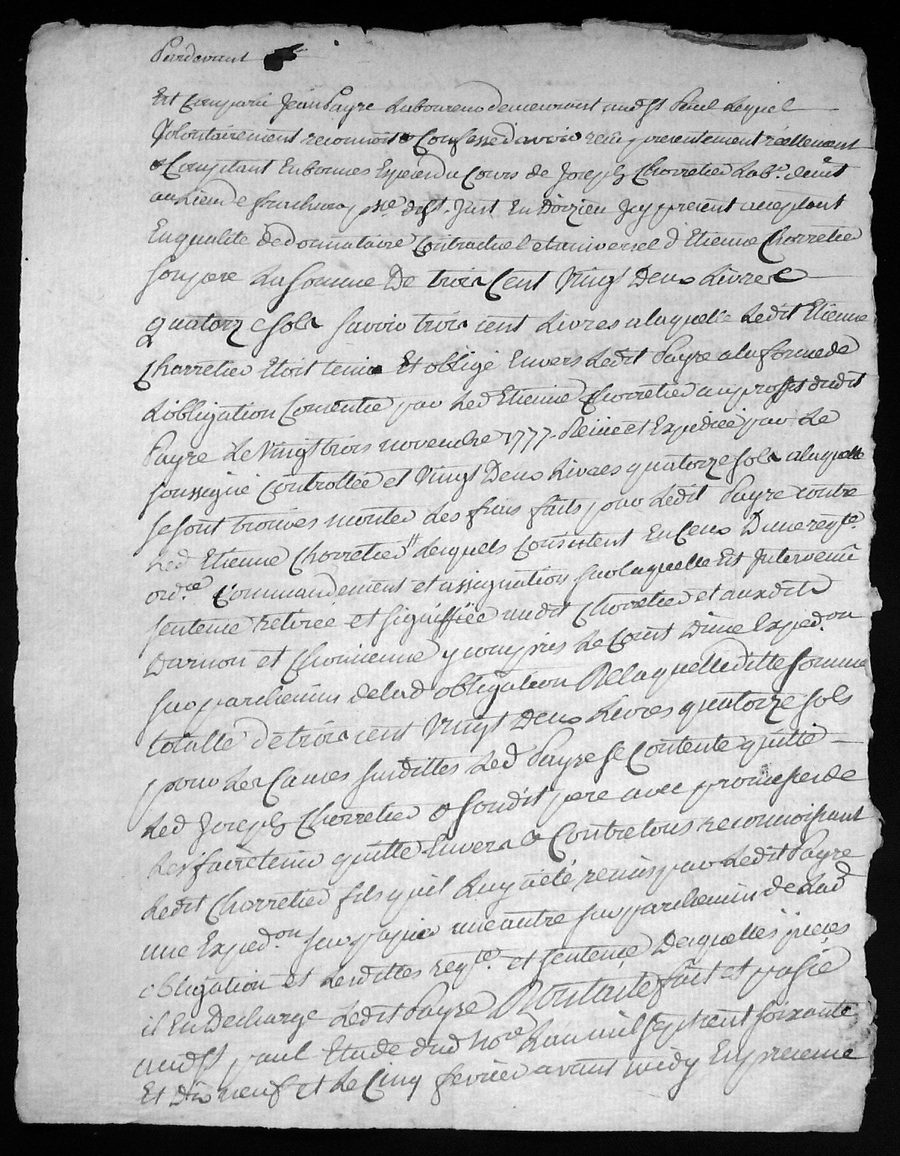 Pardevant
Est Comparu Jean Payre Laboureur demeurant aud. St Paul Lequel
Volontairement reconnoit & Confesse d'avoir reçu presentement reellement
& Comptant En bonnes Especes du Cours de Joseph Chorretier Lab.r demt
au Lieu de psse de St. Just En Doizieu Icy present acceptant
En qualité de donnataire Contractuel et universel d'Etienne Chorretier
son pere La somme De trois Cent Vingt Deux Livres
quatorze sols savoir trois cent Livres a laquelle Ledit Etienne
Chorretier Etoit tenu Et obligé Envers Ledit Payre a la forme de
L'obligation Consentie par Led Etienne Chorretier au proffit dudit
Payre Le Vingt trois novembre 1777. Reçue et Expediée par Le
soussigné Controllée et Vingt Deux Livres quatorze sols a laquelle
se sont trouvés monter Les frais faits par Ledit Payre contre
Led Etienne Chorretier Lesquels Consistent En Ceux D'une reqte
ord.ce Commandement et assignation sur laquelle Est Intervenue
sentence retirée et signiffiée audit Chorretier et auxdits
Darnon et Chomienne y compris Le Cout D'une Exped.on
sur parchemin de lad obligation De laquelle ditte somme
totalle de trois cent Vingt Deux Livres quatorze sols
pour Les Causes susdittes Led Payre se Contente quitte
Led Joseph Chorretier & sondit pere avec promesse de
Les faire tenir quitte Envers & Contre tous reconnoissant
Ledit Chorretier fils qu'il Luy a été remis par Ledit Payre
une Exped.on sur papier une autre sur parchemin de Lad
obligation et Lesdittes reqte et sentence Desquelles pieces
il En Decharge Ledit Payre Dont acte fait et passé
aud St paul Etude dud no.re L'an mil sept cent soixante
Et Dix neuf et Le Cinq fevrier avant midy En presence